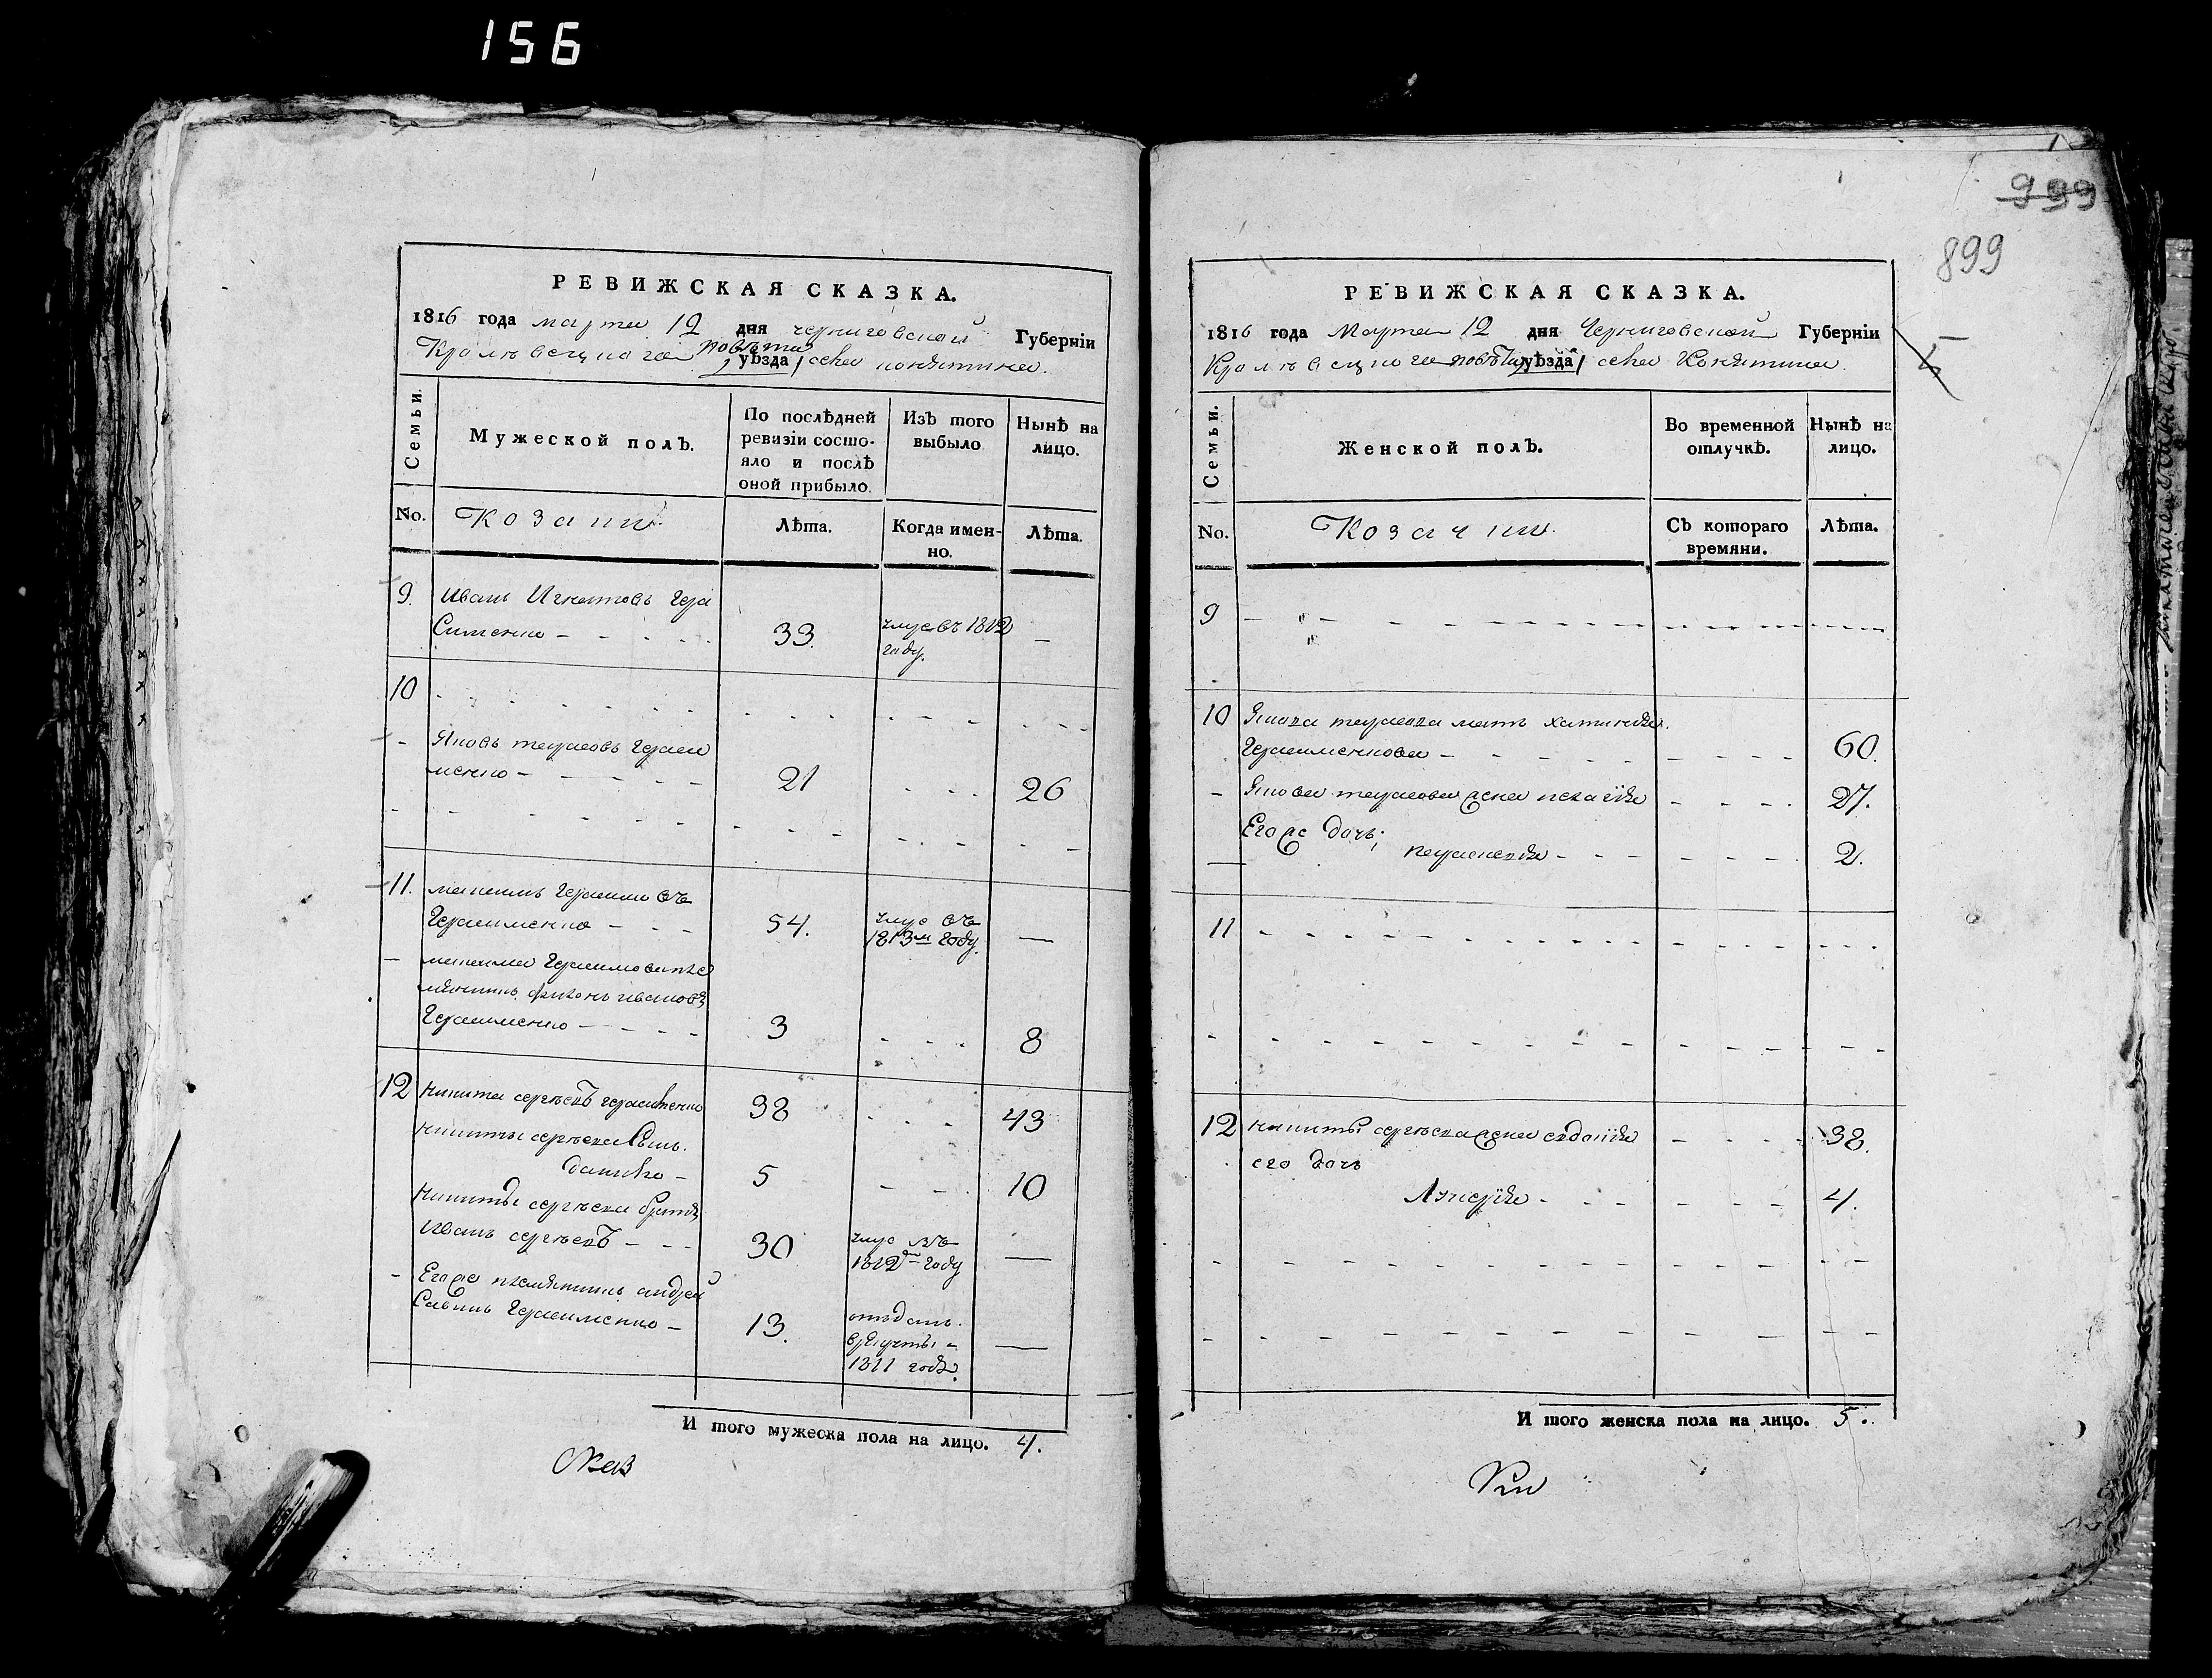 156
РЕВИЖСКАЯ СКАЗКА.
1816 года марта 12 дня черниговской Губерніи
Кролѣвецкого повѣта уѣзда села конятина.
Семьи.
Мужеской полъ.
По послѣдней ревизіи состояло и послѣ оной прибыло.
Изъ того выбыло
Нынѣ на лицо.
No.
Козаки.
Лѣта.
Когда именно.
Лѣта.
9. Иванъ Игнатовъ Гера
Сименко - - - 33. умре въ 1812 —
году.
10
- Яковъ тарасовъ Гераси
менко - - - 21 - - - 26
11. максимъ Герасимовъ
Герасименко - - - 54. умре въ —
1813м году.
- максима Герасимова пле
мянникъ иванов
Герасименко - - - 3 - - - 8
12 Никита сергѣевъ герасименко 38 - - - 43
Никиты сергѣева Сынъ.
данило - 5 - - - 10
Никиты сергѣева братъ
Иванъ сергѣевъ - - - 30 умре въ —
1812 году
- Егоже племянникъ андрей
Савинъ Герасименко - 13. отъданъ. —
врекруты -
1811 года.
И того мужеска пола на лицо. 4.
999
899
РЕВИЖСКАЯ СКАЗКА.
1816 года Марта 12 дня Черниговской Губерніи
Кролѣвецкого повѣта уѣзда села Конятина.
Семьи.
Женской полъ.
Во временной отлучкѣ.
Нынѣ на лицо.
No.
Козачки.
Съ котораго времяни.
Лѣта.
9 - - -
10 Якова тарасова мать
Герасименкова - - - 60.
- Якова тарасова жена пелагія - - - 27.
Егоже дочь;
- - - 2.
11 - - -
12 Никиты сергѣева жена евдокія - - - 38.
его дочь
- - - 4.
И того женска пола на лицо. 5.